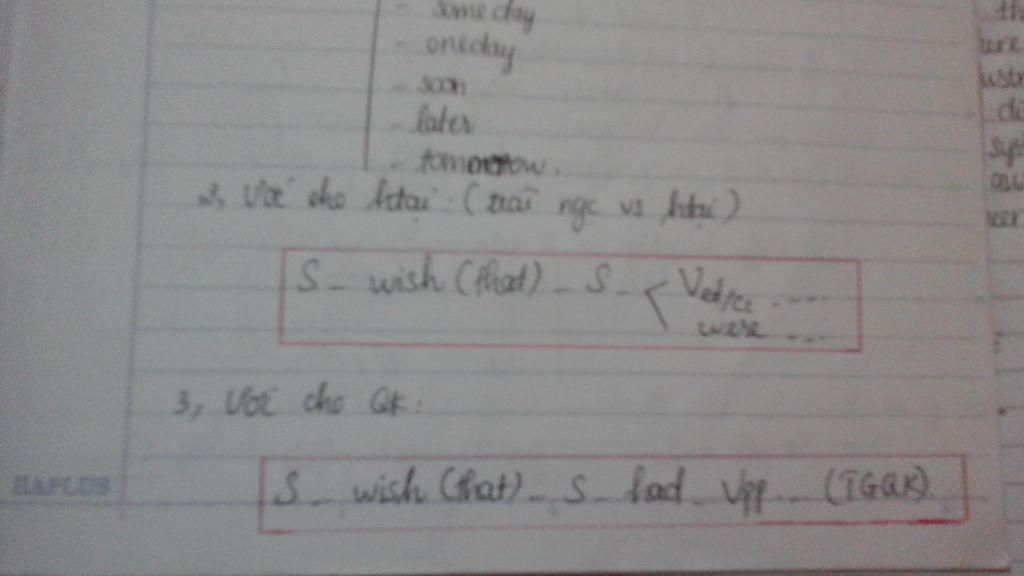 - someday
- oneday
- soon
- later
- tomorrow.
2, Ước cho htại: (trái ngc vs htại)
S - wish (that) - S - < Ved/C2 ....
were ...
3, Ước cho QK:
S - wish (that) - S - had - Vpp ... (TGQK)
HAPLUS